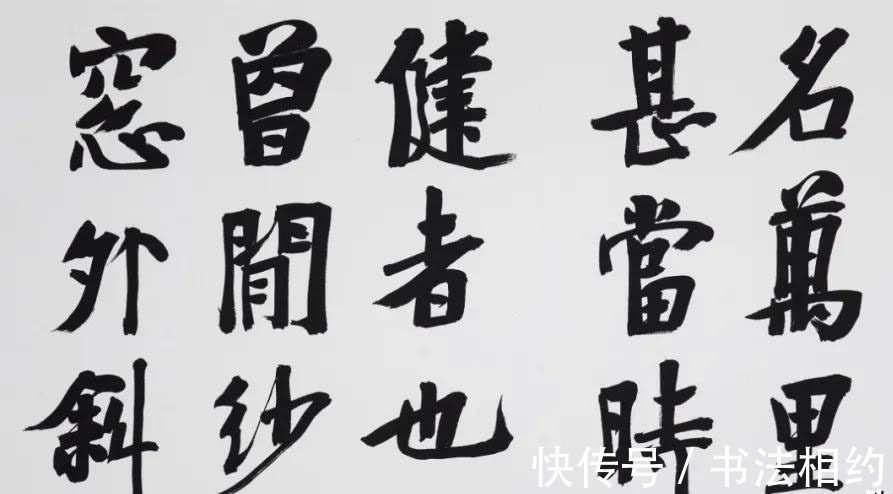 名萬里
甚當時
健者也
曾閒紗
窓外斜
快传号 / 书法相约